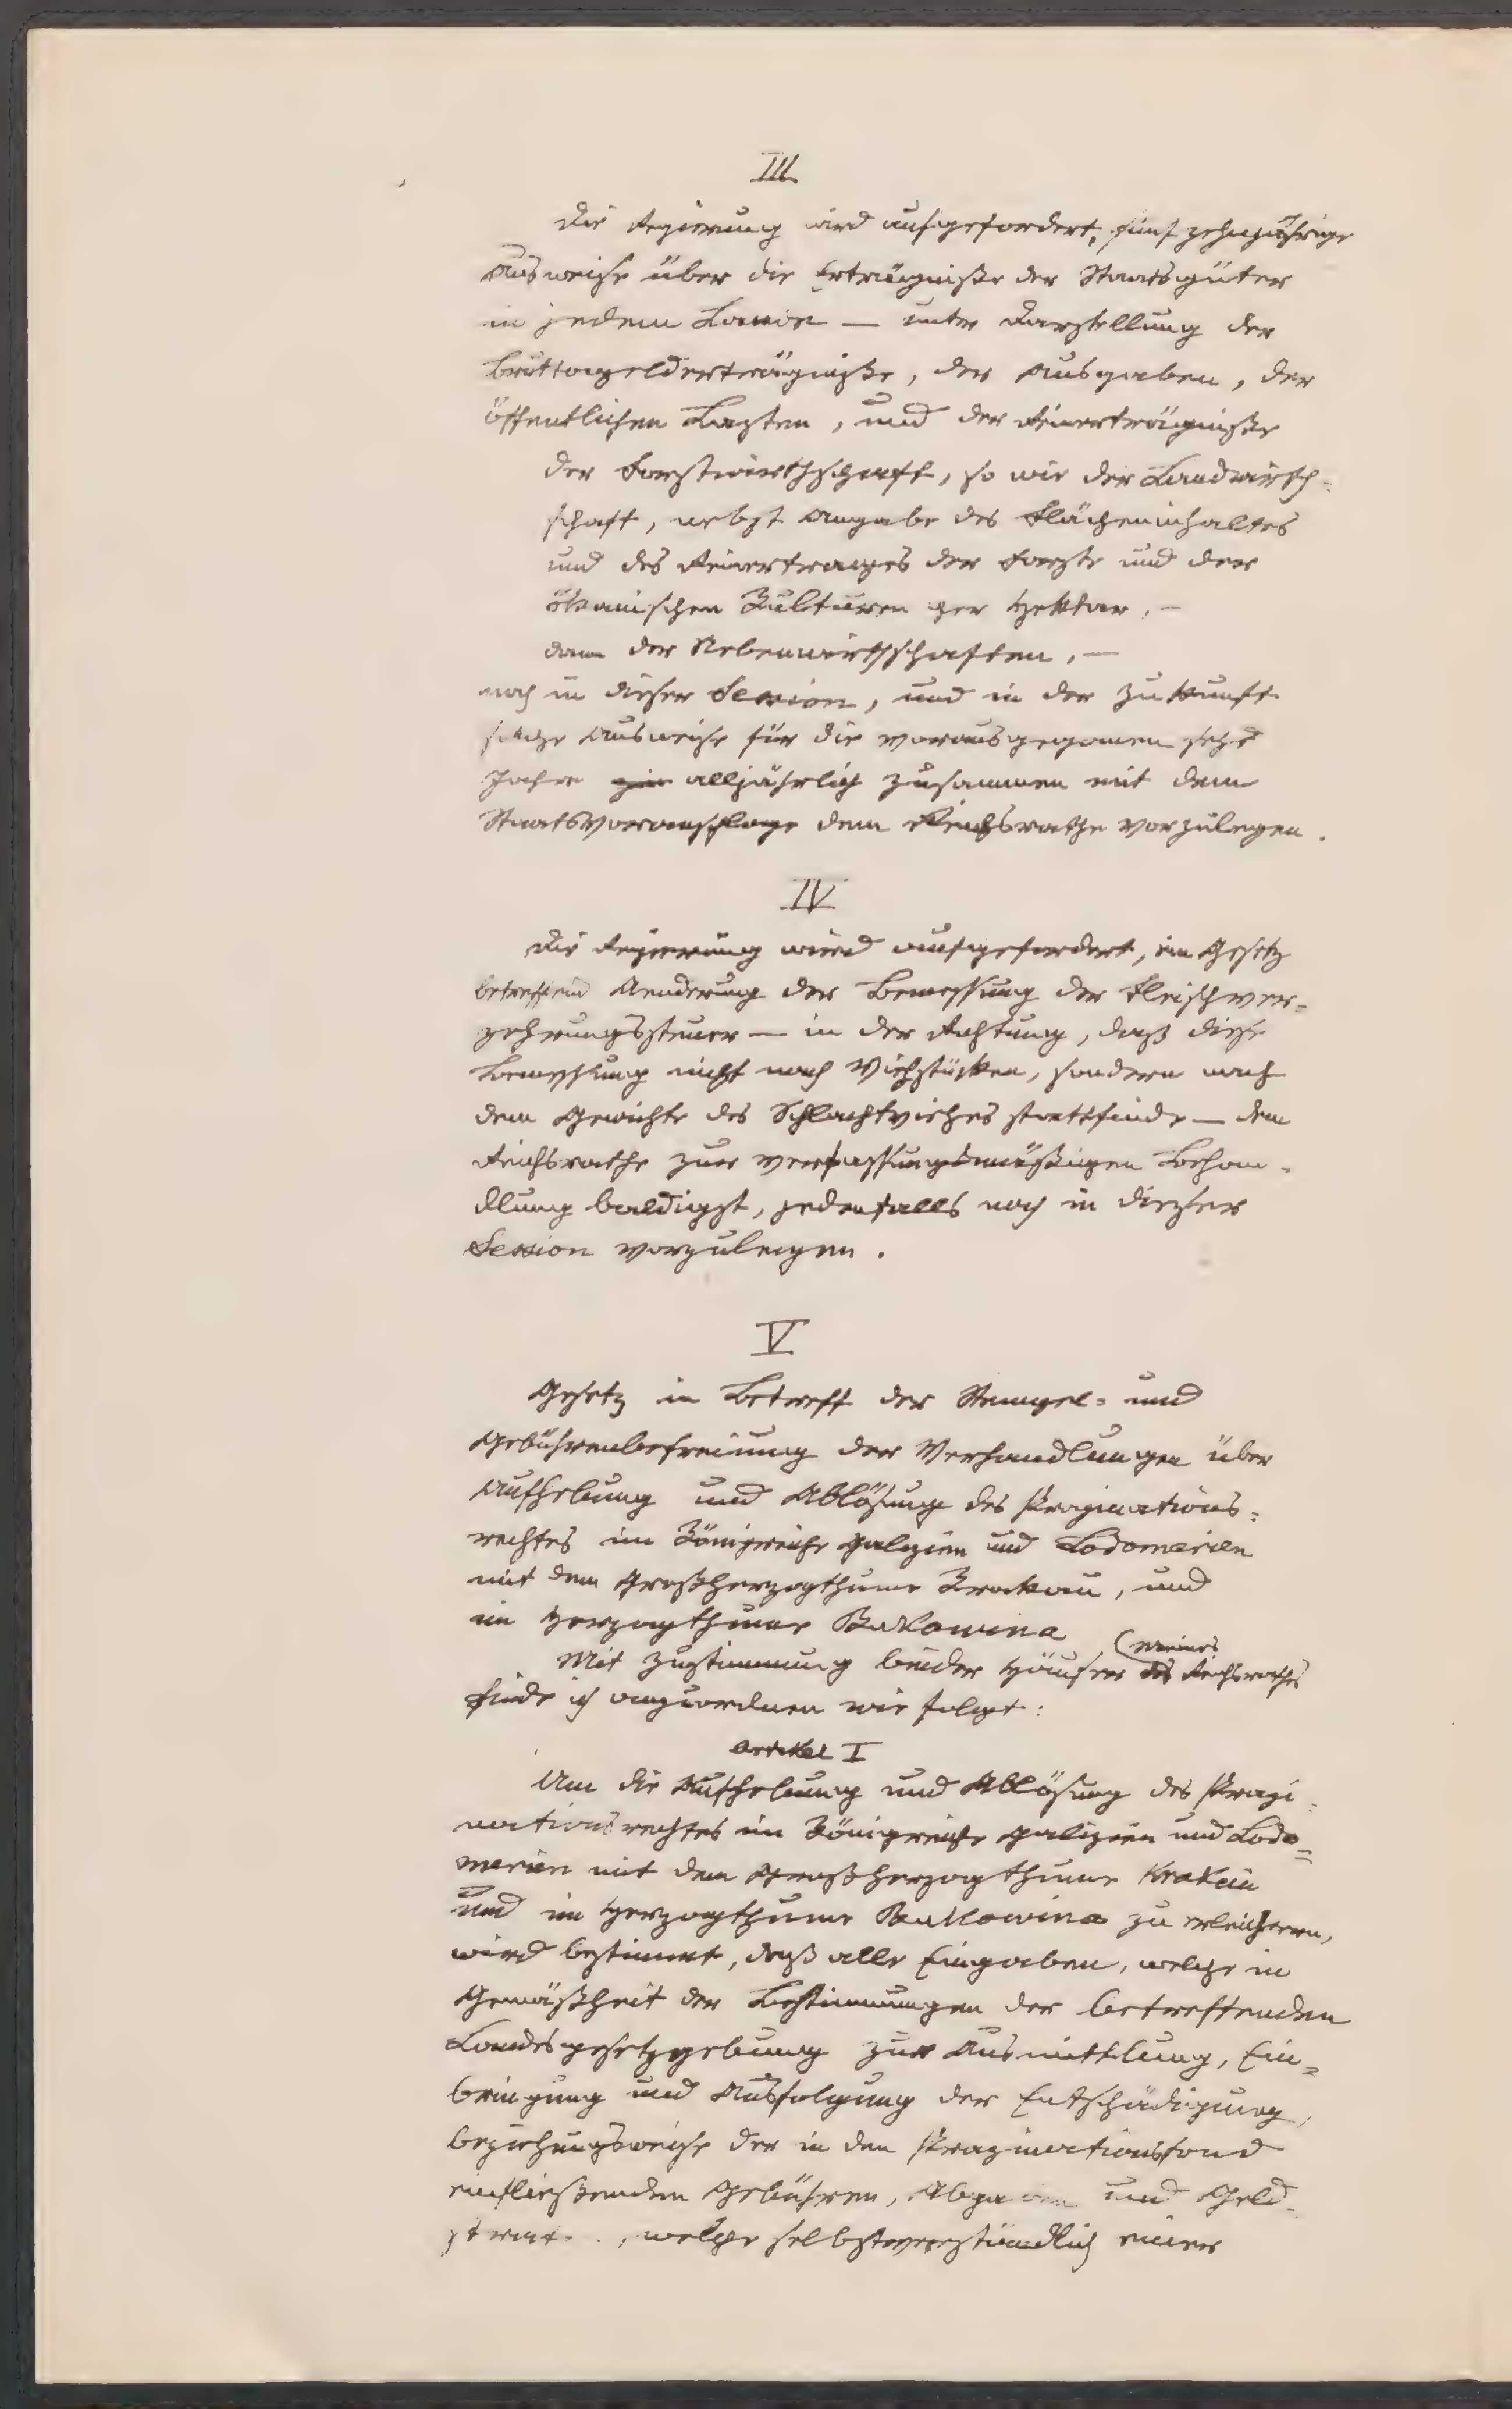 III
Die Regierung wird aufgefordert, fünfzehnjährige
Ausweise über die Erträgnisse der Staatsgüter
in jedem — unter Darstellung der
Bruttogelderträgnisse, der Ausgaben, der
öffentlichen Lasten, und der Reinerträgnisse
der Forstwirthschaft, so wie der Landwirth-
schaft, nebst Angabe des Flächeninhaltes
und des Reinertrages der Forste und der
ökonischen Kulturen per Hektar, —
dann der Nebenwirthschaften, —
noch in dieser Session, und in der Zukunft
solche Ausweise für die vorausgegangenen sechs
Jahre alljährlich zusammen mit dem
Staatsvoranschlage dem Reichsrathe vorzulegen.
IV
Die Regierung wird aufgefordert, ein Gesetz
betreffend Aenderung der Bemessung der Fleischver-
zehrungssteuer — in der Richtung, daß diese
Bemessung nicht nach Viehstücken, sondern nach
dem Gewichte des Schlachtviehes stattfinde — dem
Reichsrathe zur verfassungsmäßigen Behan-
dlung baldigst, jedenfalls noch in dieser
Session vorzulegen.
V
Gesetz in Betreff der Stempel- und
Gebührenbefreiung der Verhandlungen über
Aufhebung und Ablösung des Propinations-
rechtes im Königreiche Galizien und Lodomerien
mit dem Großherzogthume Krakau, und
im Herzogthume Bukowina
(meines
Mit Zustimmung beider Häuser des Reichsrathes
finde ich anzuordnen wie folgt:
Artikel I
Um die Aufhebung und Ablösung des Propi-
nationsrechtes im Königreiche Galizien und Lodo=
merien mit dem Großherzogthume Krakau
und im Herzogthume Bukowina zu erleichtern,
wird bestimmt, daß alle Eingaben, welche in
Gemäßheit der Bestimmungen der betreffenden
Landesgesetzgebung zur Ausmittlung, Ein=
bringung und Ausfolgung der Entschädigung,
beziehungsweise der in den Propinationsfond
einfließenden Gebühren, Abgaben und Geld-
welche selbstverständlich einer